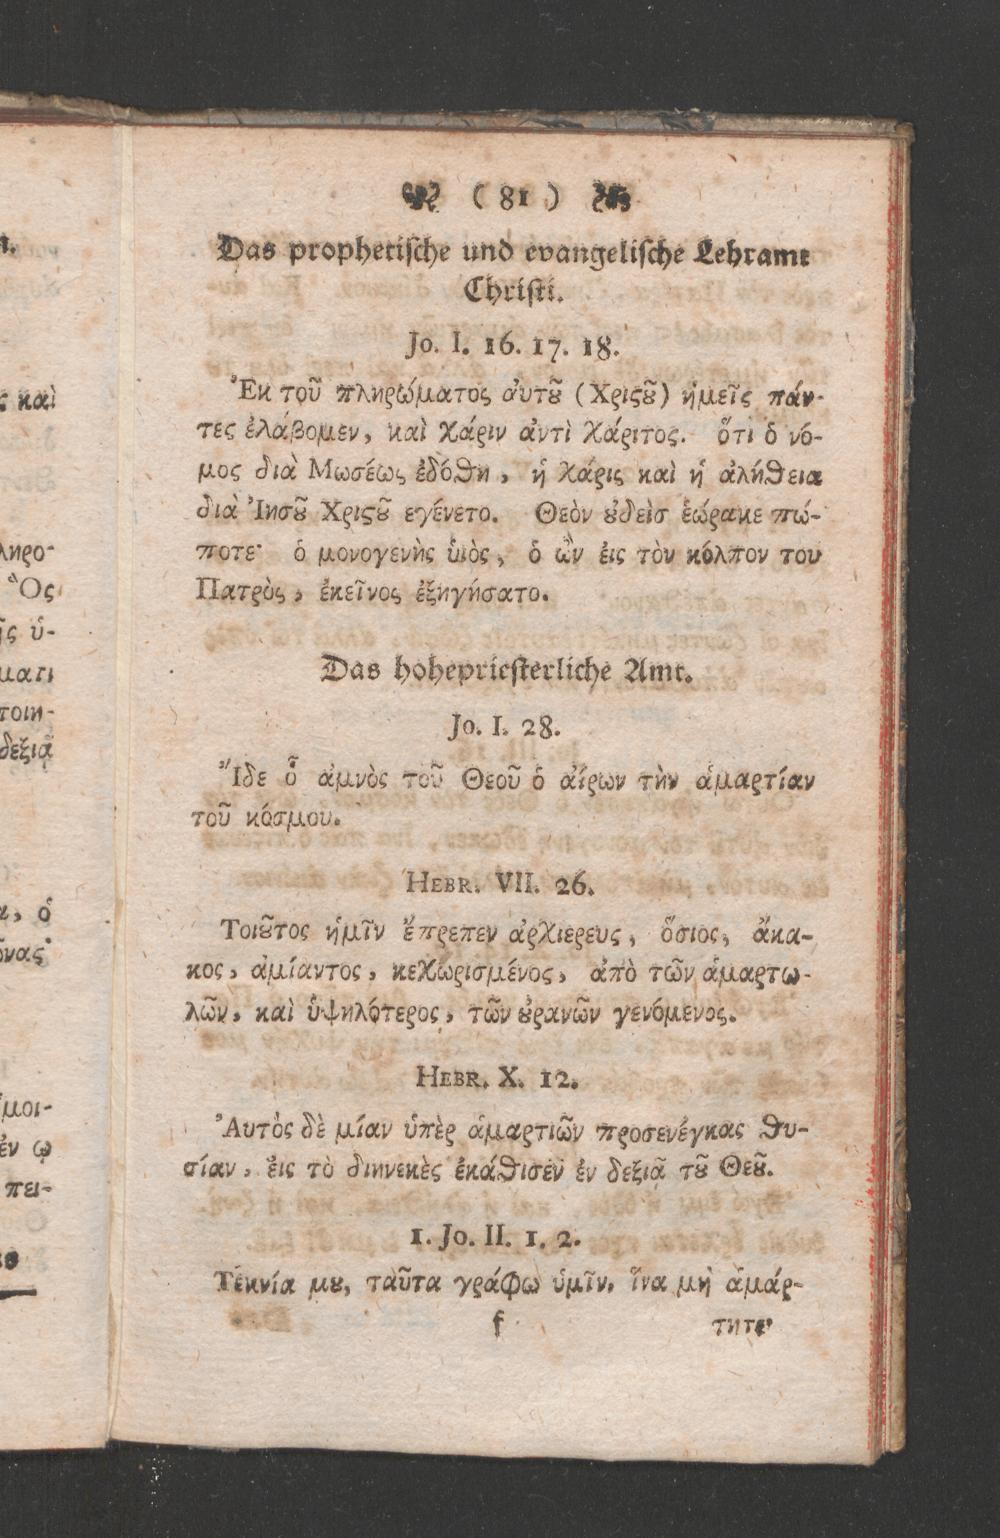 ( 81 )
Das prophetische und evangelische Lehramt
Christi.
Jo. I. 16. 17. 18.
Ἐκ τοῦ πληρώματος ἀυτȣ͂ (Χριϛȣ͂) ἡμεῖς πάν-
τες ἐλάβομεν, καὶ χάριν ἀντὶ χάριτος. ὅτι ὁ νό-
μος διὰ Μωσέως ἐδόθη, ἡ χάρις καὶ ἡ ἀλήθεια
διὰ Ἰησȣ͂ Χριϛȣ͂ εγένετο. Θεὸν ȣ̓δεὶσ ἑώρακε πώ-
ποτε· ὁ μονογενὴς ὑιὸς, ὁ ὢν ἐις τὸν κόλπον του
Πατρὸς, ἐκεῖνος ἐξηγήσατο.
Das hohepriesterliche Amt.
Jo. I. 28.
Ἴδε ὁ ἀμνὸς τοῦ Θεοῦ ὁ ἀίρων τὴν ἁμαρτίαν
τοῦ κόσμου.
HEBR. VII. 26.
Τοιȣ͂τος ἡμῖν ἔπρεπεν ἀρχιερευς, ὅσιος, ἄκα-
κος, ἀμίαντος, κεχωρισμένος, ἀπὸ τῶν ἁμαρτω-
λῶν, καὶ ὑψηλότερος, τῶν ȣ̓ρανῶν γενόμενος.
HEBR. X. 12.
Ἀυτὸς δὲ μίαν ὑπὲρ ἁμαρτιῶν προσενέγκας θυ-
σίαν, ἐις τὸ διηνεκὲς ἐκάθισεν ἐν δεξιᾶ τȣ͂ Θεȣ͂.
1. Jo. II. 1. 2.
Τεκνία μȣ, ταῦτα γράφω ὑμῖν, ἵνα μὴ ἁμάρ-
f
τητε·